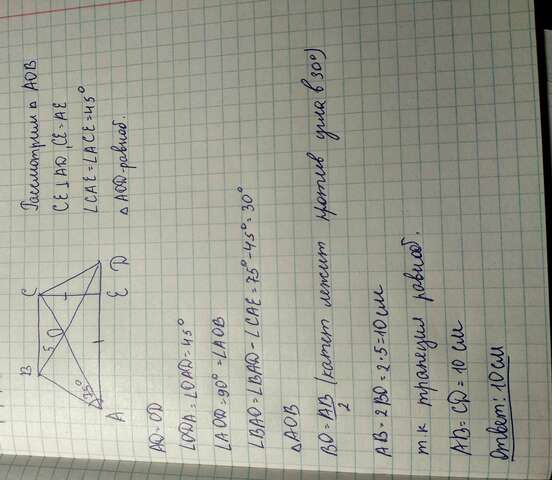 B
C
5
O
75°
A
E
D
Рассмотрим △ AOB
CE⊥AD, CE=AE
∠CAE=∠ACE=45°
△ AOD-равноб.
AO=OD
∠ODA=∠OAD=45°
∠AOD=90°=∠AOB
∠BAO=∠BAD-∠CAE=75°-45°=30°
△AOB
BO=AB/2 (катет лежит против угла в 30°)
AB=2BO=2·5=10 см
т.к трапеция равноб.
AB=CD=10 см
Ответ: 10 см